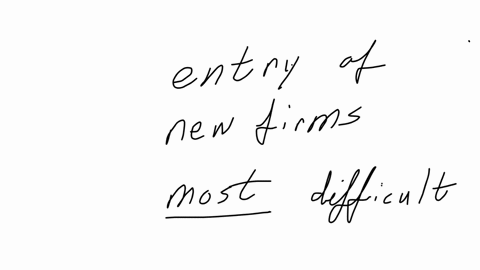 entry of
new firms
most difficult